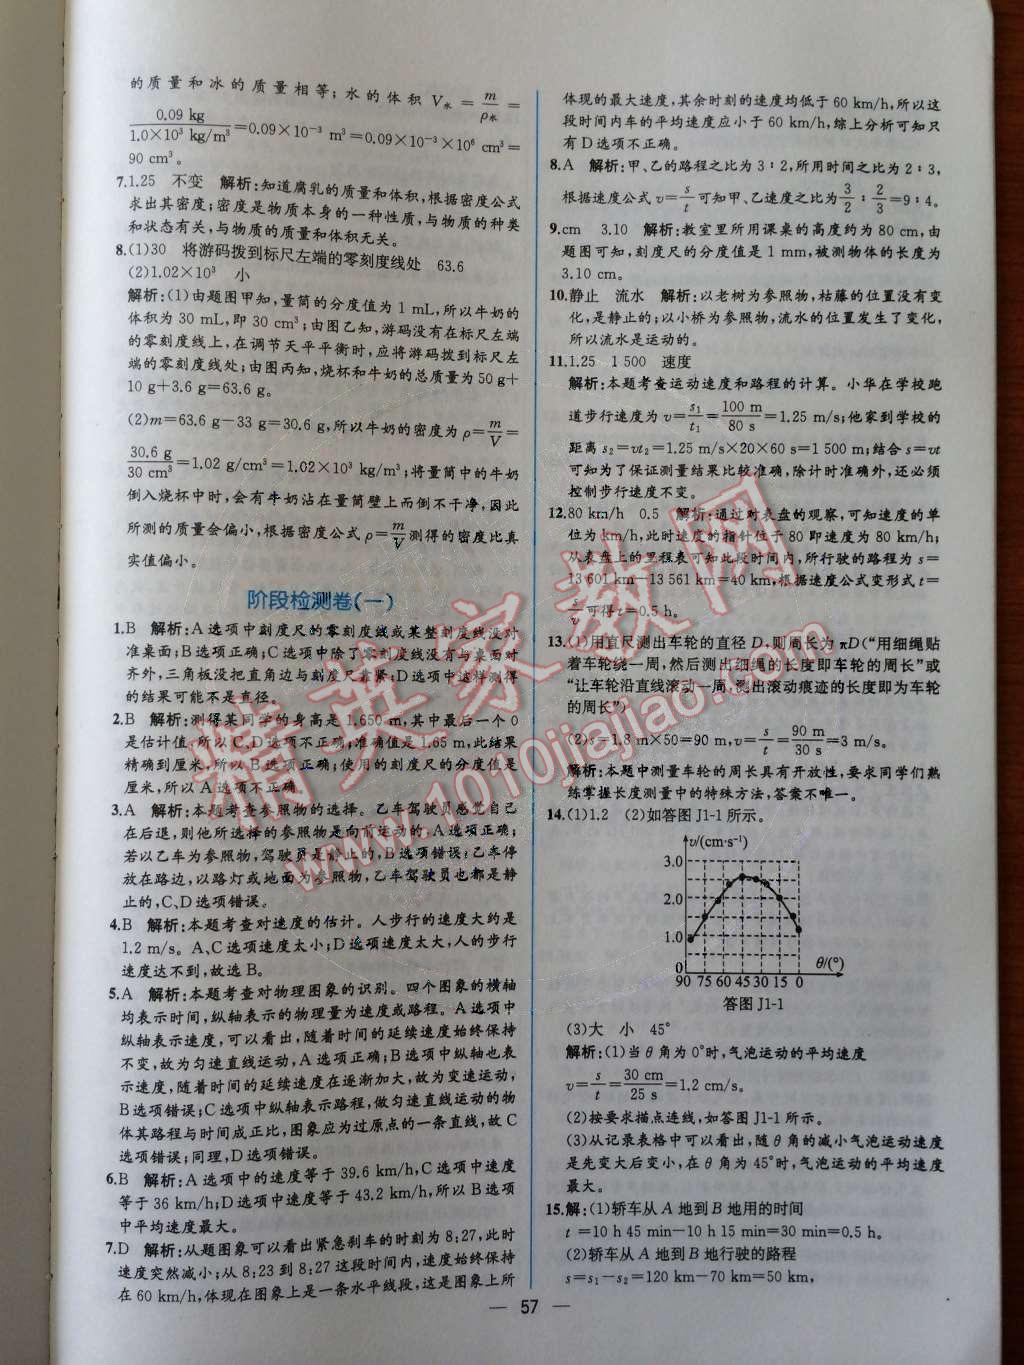 的质量和冰的质量相等;水的体积 V水=m/ρ水=
0.09 kg/1.0×10³ kg/m³=0.09×10⁻³ m³=0.09×10⁻³×10⁶ cm³=
90 cm³。
7.1.25 不变 解析:知道腐乳的质量和体积,根据密度公式
求出其密度;密度是物质本身的一种性质,与物质的种类
和状态有关,与物质的质量和体积无关。
8.(1)30 将游码拨到标尺左端的零刻度线处 63.6
(2)1.02×10³ 小
解析:(1)由题图甲知,量筒的分度值为 1 mL,所以牛奶的
体积为 30 mL,即 30 cm³;由图乙知,游码没有在标尺左端
的零刻度线上,在调节天平平衡时,应将游码拨到标尺左
端的零刻度线处;由图丙知,烧杯和牛奶的总质量为 50 g+
10 g+3.6 g=63.6 g。
(2)m=63.6 g-33 g=30.6 g,所以牛奶的密度为 ρ=m/V=
30.6 g/30 cm³=1.02 g/cm³=1.02×10³ kg/m³;将量筒中的牛奶
倒入烧杯中时,会有牛奶沾在量筒壁上而倒不干净,因此
所测的质量会偏小,根据密度公式 ρ=m/V测得的密度比真
实值偏小。
阶段检测卷(一)
1.B 解析:A 选项中刻度尺的零刻度线或某整刻度线没对
准桌面;B 选项正确;C 选项中除了零刻度线没有与桌面对
齐外,三角板没把直角边与刻度尺靠紧;D 选项中这样测得
的结果可能不是直径。
2.B 解析:测得某同学的身高是 1.650 m,其中最后一个 0
是估计值,所以 C、D 选项不正确,准确值是 1.65 m,此结果
精确到厘米,所以 B 选项正确;使用的刻度尺的分度值是
厘米,所以 A 选项不正确。
3.A 解析:本题考查参照物的选择。乙车驾驶员感觉自己
在后退,则他所选择的参照物是向前运动的,A 选项正确;
若以乙车为参照物,驾驶员是静止的,B 选项错误;乙车停
放在路边,以路灯或地面为参照物,乙车驾驶员也都是静
止的,C、D 选项错误。
4.B 解析:本题考查对速度的估计。人步行的速度大约是
1.2 m/s。A、C 选项速度太小;D 选项速度太大,人的步行
速度达不到,故选 B。
5.A 解析:本题考查对物理图象的识别。四个图象的横轴
均表示时间,纵轴表示的物理量为速度或路程。A 选项中
纵轴表示速度,可以看出,随着时间的延续速度始终保持
不变,故为匀速直线运动,A 选项正确;B 选项中纵轴也表
示速度,随着时间的延续速度在逐渐加大,故为变速运动,
B 选项错误;C 选项中纵轴表示路程,做匀速直线运动的物
体其路程与时间成正比,图象应为过原点的一条直线,故 C
选项错误;同理,D 选项错误。
6.B 解析:A 选项中的速度等于 39.6 km/h,C 选项中速度
等于 36 km/h;D 选项中速度等于 43.2 km/h,所以 B 选项
中平均速度最大。
7.D 解析:从题图象可以看出紧急刹车的时刻为 8:27,此时
速度突然减小;从 8:23 到 8:27 这段时间内,速度始终保持
在 60 km/h,体现在图象上是一条水平线段,这是图象上所
体现的最大速度,其余时刻的速度均低于 60 km/h,所以这
段时间内车的平均速度应小于 60 km/h,综上分析可知只
有 D 选项不正确。
8.A 解析:甲、乙的路程之比为 3∶2,所用时间之比为 2∶3,
根据速度公式 v=s/t 可知甲、乙速度之比为3/2∶2/3=9∶4。
9.cm 3.10 解析:教室里所用课桌的高度约为 80 cm,由
题图可知,刻度尺的分度值是 1 mm,被测物体的长度为
3.10 cm。
10.静止 流水 解析:以老树为参照物,枯藤的位置没有变
化,是静止的;以小桥为参照物,流水的位置发生了变化,
所以流水是运动的。
11.1.25 1 500 速度
解析:本题考查运动速度和路程的计算。小华在学校跑
道步行速度为 v=s₁/t₁=100 m/80 s=1.25 m/s;他家到学校的
距离 s₂=vt₂=1.25 m/s×20×60 s=1 500 m;结合 s=vt
可知为了保证测量结果比较准确,除计时准确外,还必须
控制步行速度不变。
12.80 km/h 0.5 解析:通过对表盘的观察,可知速度的单
位为 km/h,此时速度的指针位于 80 即速度为 80 km/h;
从表盘上的里程表可知此段时间内,所行驶的路程为 s=
13 601 km-13 561 km=40 km,根据速度公式变形式 t=
s/v可得 t=0.5 h。
13.(1)用直尺测出车轮的直径 D,则周长为 πD(“用细绳贴
着车轮绕一周,然后测出细绳的长度即车轮的周长”或
“让车轮沿直线滚动一周,测出滚动痕迹的长度即为车轮
的周长”)
(2)s=1.8 m×50=90 m,v=s/t=90 m/30 s=3 m/s。
解析:本题中测量车轮的周长具有开放性,要求同学们熟
练掌握长度测量中的特殊方法,答案不唯一。
14.(1)1.2 (2)如答图 J1-1 所示。
v/(cm·s⁻¹)
3.0
2.0
1.0
0
θ/(°)
90 75 60 45 30 15 0
答图 J1-1
(3)大 小 45°
解析:(1)当 θ 角为 0°时,气泡运动的平均速度
v=s/t=30 cm/25 s=1.2 cm/s。
(2)按要求描点连线,如答图 J1-1 所示。
(3)从记录表格中可以看出,随 θ 角的减小气泡运动速度
是先变大后变小,在 θ 角为 45°时,气泡运动的平均速度
最大。
15.解:(1)轿车从 A 地到 B 地用的时间
t=10 h 45 min-10 h 15 min=30 min=0.5 h。
(2)轿车从 A 地到 B 地行驶的路程
s=s₁-s₂=120 km-70 km=50 km,
— 57 —
精英家教网
www.1010jiajiao.com